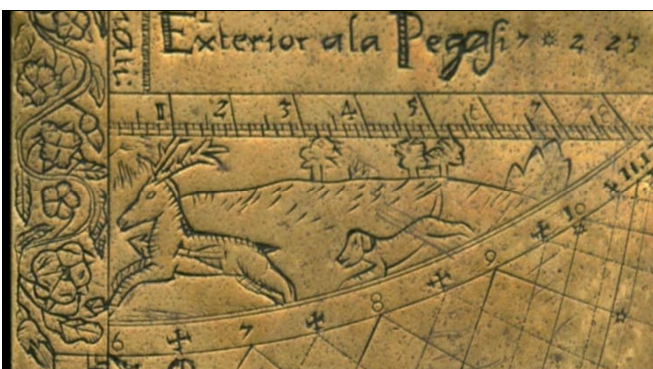 Exterior ala Pegaſi 7 * 2 23
2 3 4 5 6 7 8
6 7 8 9 10